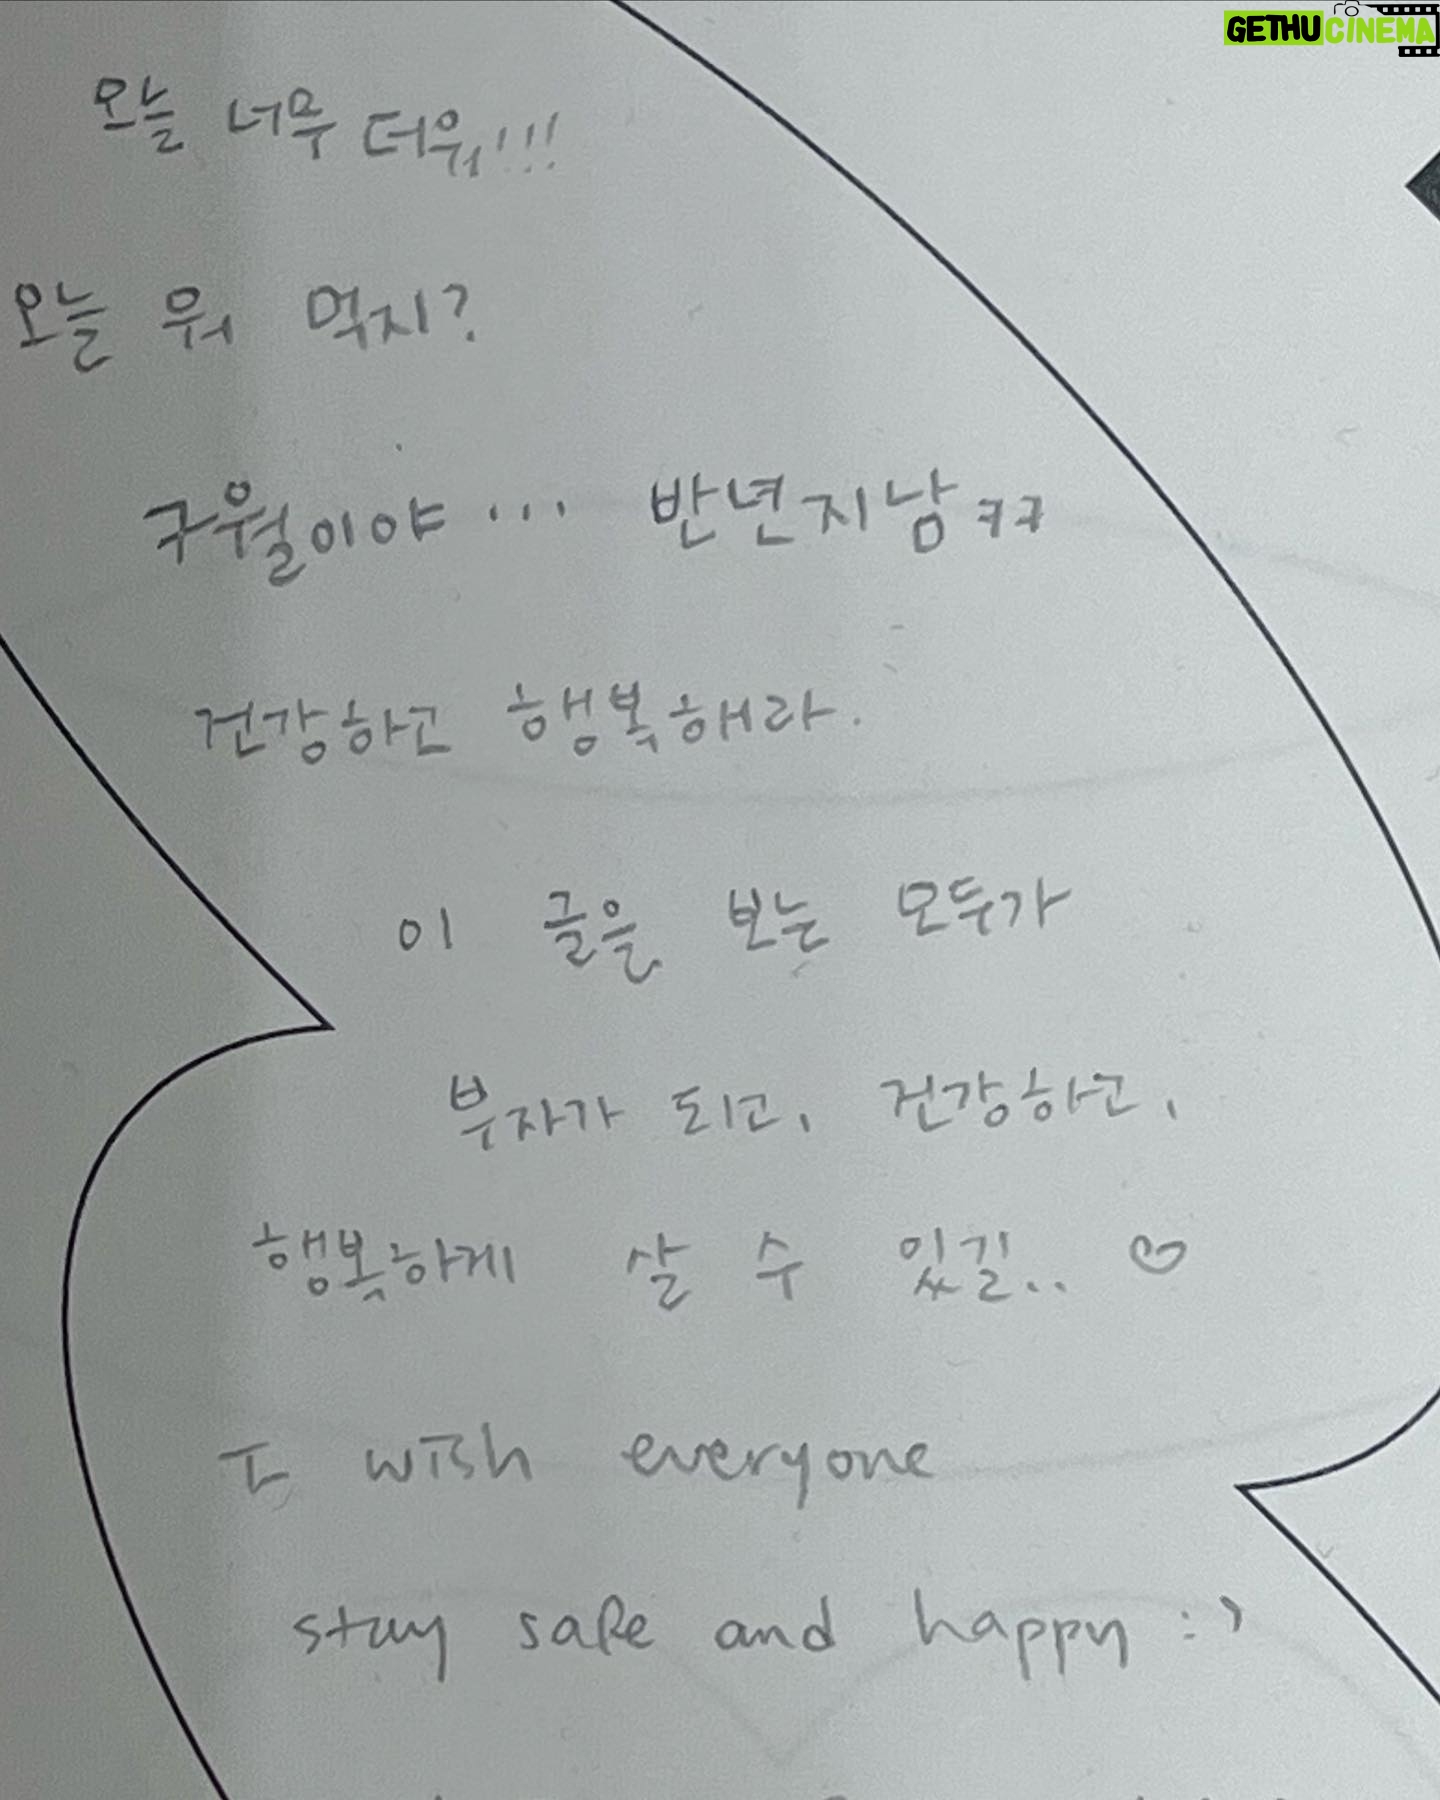 GETHUCINEMA
오늘 너무 더워!!!
오늘 뭐 먹지?
구월이야... 반년지남ㅋㅋ
건강하고 행복해라.
이 글을 보는 모두가
부자가 되고, 건강하고,
행복하게 살 수 있길.. ♡
I wish everyone
stay safe and happy :)